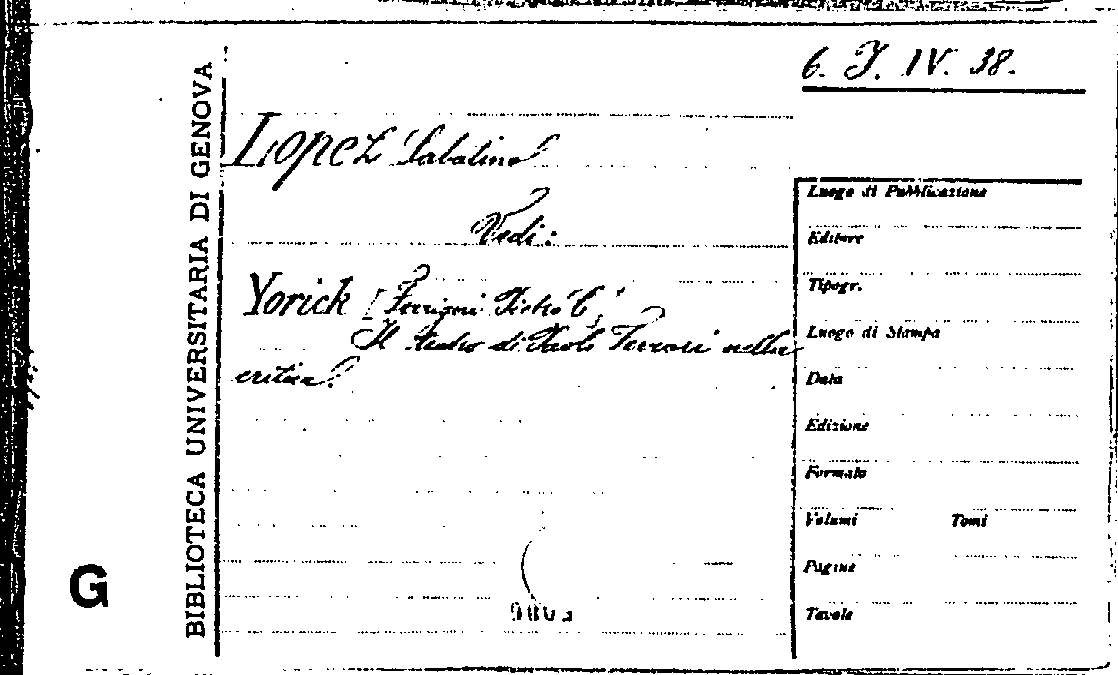 6. J. IV. 38.
BIBLIOTECA UNIVERSITARIA DI GENOVA
Lopez Sabatino
Vedi:
Yorick [Ferrigni Pietro C.]
Il teatro di Paolo Ferrari nella
critica.
Luogo di Pubblicazione
Editore
Tipogr.
Luogo di Stampa
Data
Edizione
Formato
Volumi Tomi
Pagine
Tavole
G